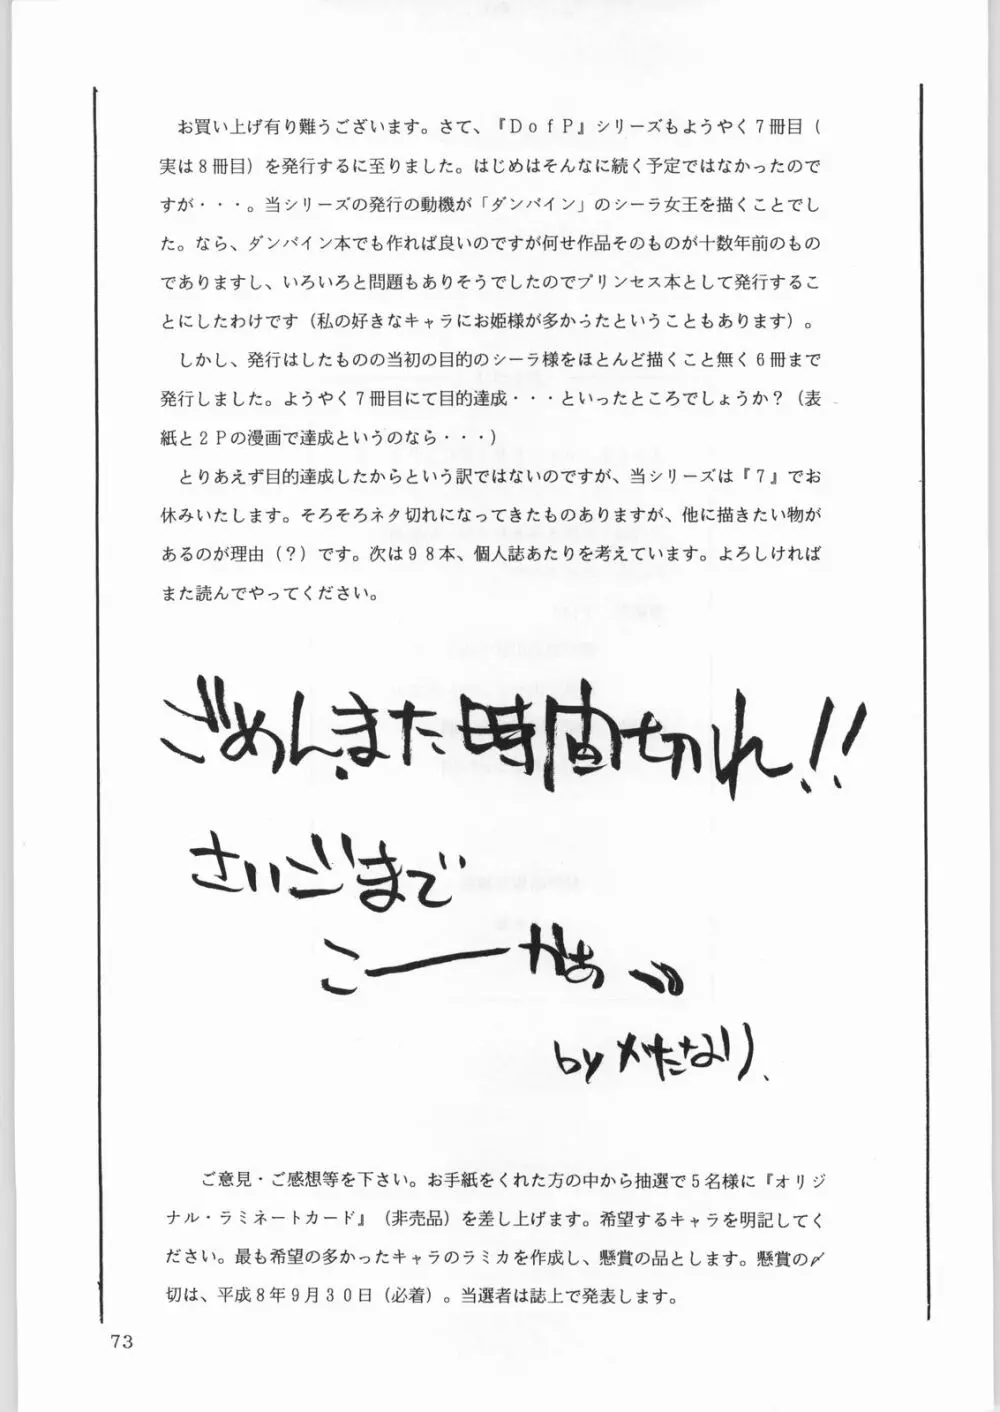 お買い上げ有り難うございます。さて、『ＤｏｆＰ』シリーズもようやく７冊目（
実は８冊目）を発行するに至りました。はじめはそんなに続く予定ではなかったので
すが・・・。当シリーズの発行の動機が「ダンバイン」のシーラ女王を描くことでし
た。なら、ダンバイン本でも作れば良いのですが何せ作品そのものが十数年前のもの
でありますし、いろいろと問題もありそうでしたのでプリンセス本として発行するこ
とにしたわけです（私の好きなキャラにお姫様が多かったということもあります）。
しかし、発行はしたものの当初の目的のシーラ様をほとんど描くこと無く６冊まで
発行しました。ようやく７冊目にて目的達成・・・といったところでしょうか？（表
紙と２Ｐの漫画で達成というのなら・・・）
とりあえず目的達成したからという訳ではないのですが、当シリーズは『７』でお
休みいたします。そろそろネタ切れになってきたものありますが、他に描きたい物が
あるのが理由（？）です。次は９８本、個人誌あたりを考えています。よろしければ
また読んでやってください。
ごめん、また時間切れ!!
さいごまで
こーかぁ
by かたなり、
ご意見・ご感想等を下さい。お手紙をくれた方の中から抽選で５名様に『オリジ
ナル・ラミネートカード』（非売品）を差し上げます。希望するキャラを明記してく
ださい。最も希望の多かったキャラのラミカを作成し、懸賞の品とします。懸賞の〆
切は、平成８年９月３０日（必着）。当選者は誌上で発表します。
73